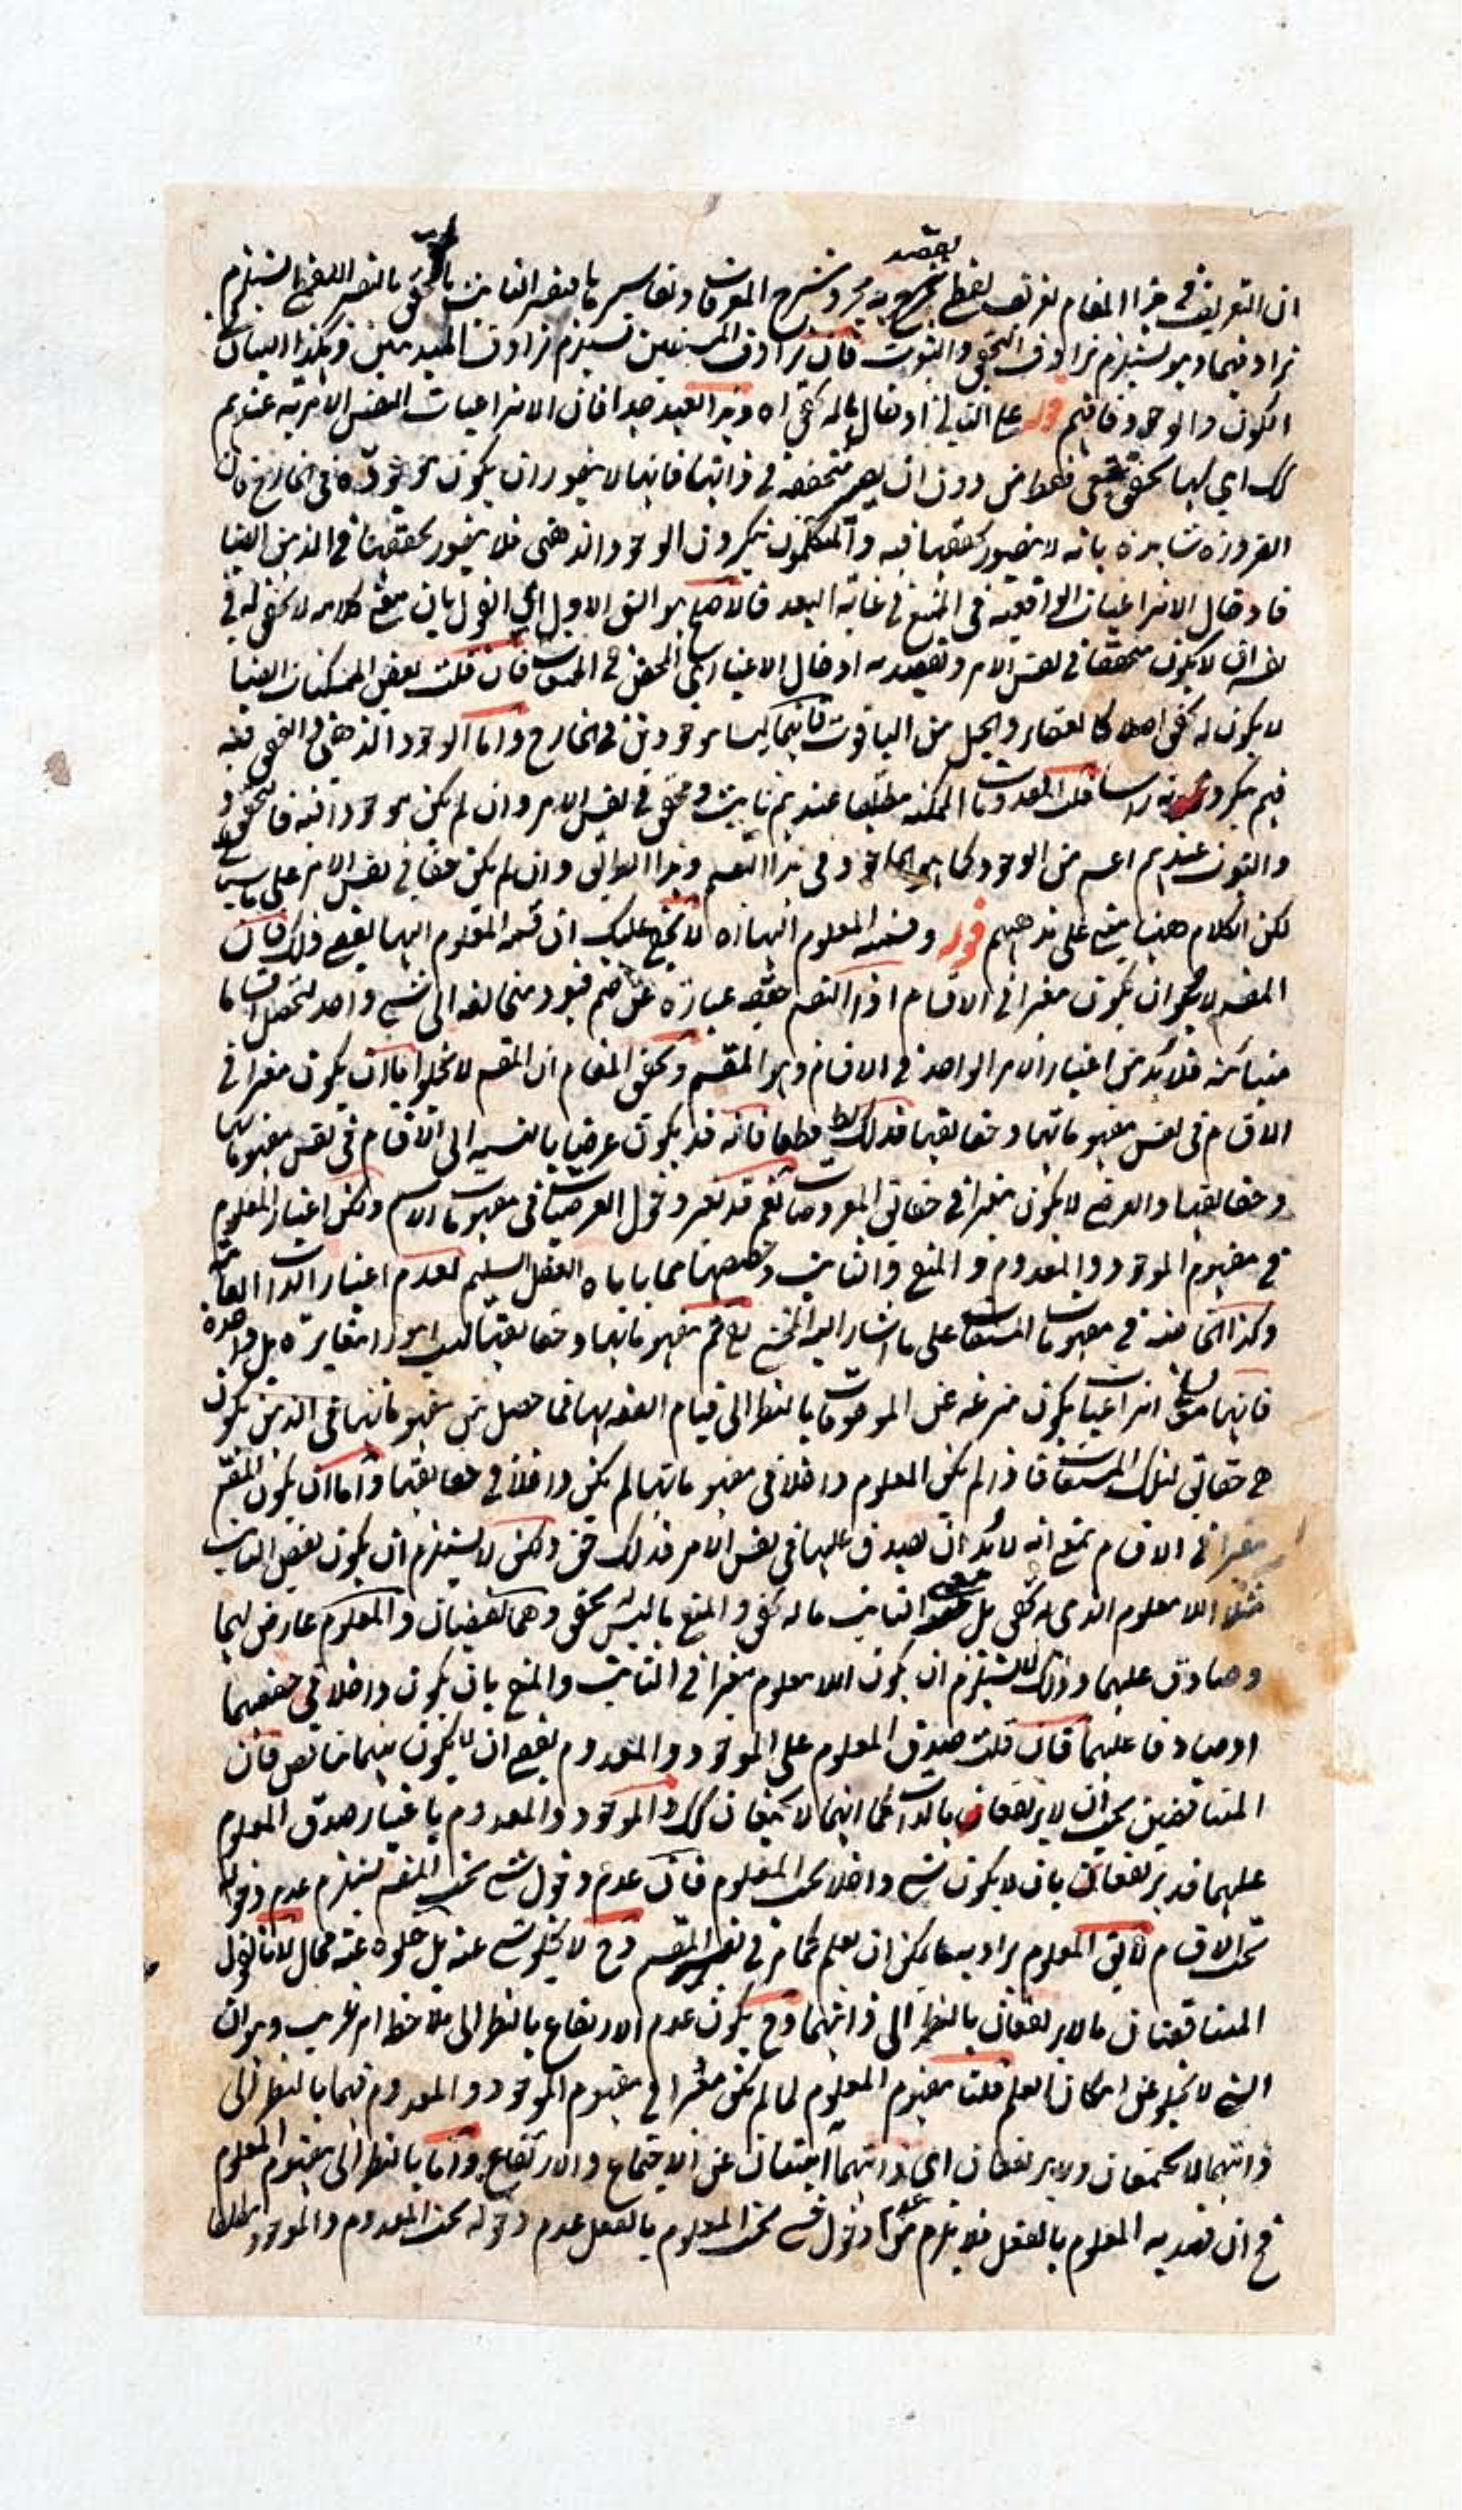 ان التعريف في هذا المقام تعريف لفظي يقصد به مجرد شرح المعرفات وتفاسيرها فتفسير الثابت بالمتحقق بالتفسير اللفظي يستلزم
ترادفهما وهو يستلزم ترادف التحقق والثبوت فان ترادف المشتقين يستلزم ترادف المبدئين وهكذا البيان في
الكون والوجود فافهم قوله على الثاني ادخال ماله تحقق اه وهذا بعيد جدا فان الانتزاعيات النفس الامرية عندهم
كك اي لها تحقق فقط من دون ان يعتبر متحققة في ذاتها فانها لا يجوز ان يكون موجودة في الخارج فان
الضرورة شاهدة بانه لا يتصور تحققها فيه والمتكلمون ينكرون الوجود الذهني فلا يجوز تحققها في الذهن ايضا
فادخال الانتزاعيات الواقعية في الممتنع في غاية البعد فالاصلح هو الشق الاول اي القول بان معنى كلامه لا تحقق له في
نفسه ان لا يكون متحققا في نفس الامر ويقصد به ادخال الاعتباري المحض في الممتنع فان قلت بعض الممكنات ايضا
لا يكون له تحقق اصلا كالعنقاء والجبل من الياقوت فانهما ليسا موجودين في الخارج واما الوجود الذهني والتحقق فيه
فهم ينكرونه راسا قلت المعدومات الممكنة مطلقا عندهم ثابت ومتحقق في نفس الامر وان لم يكن موجودا فيه فالتحقق
والثبوت عندهم اعم من الوجود كما هو الماخوذ في هذا التقسيم وهذا الراي وان لم يكن حقا في نفس الامر على ما سيجيء
لكن الكلام ههنا مبني على مذهبهم قوله وقسمة المعلوم اليها اه لا يخفى عليك ان قسمة المعلوم اليها يقتضي ذلك فان
المقسم لا بد وان يكون معتبرا في الاقسام اذ التقسيم حقيقة عبارة عن ضم قيود متخالفة الى شيء واحد لتحصل اقساما
متباينة فلا بد من اعتبار الامر الواحد في الاقسام وهو المقسم وتحقيق المقام ان المقسم لا يخلو اما ان يكون معتبرا في
الاقسام في نفس مفهوماتها وحقائقها فذلك بط قطعا فانه قد يكون عرضيا بالنسبة الى الاقسام في نفس مفهوماتها
وحقائقها والعرضي لا يكون معتبرا في حقائق المعروضات نعم قد يعتبر دخول العرضيات في مفهومات الاسم ولكن اعتبار المعلوم
في مفهوم الموجود والمعدوم والممتنع والثابت وخصوصها مما ياباه العقل السليم لعدم اعتبار الذات العامة
وكذا الخاصة في مفهومات المشتقات على ما اشار اليه المحشي ثم مفهوماتها وحقائقها ليست امورا متغايرة بل واحدة
فانها انتزاعيات يكون منتزعة عن الموصوفات بالنظر الى قيام الصفة بها فما حصل من مفهوماتها في الذهن يكون
هي حقائق لتلك المشتقات فاذا لم يكن المعلوم داخلا في مفهوماتها لم يكن داخلا في حقائقها واما ان يكون المقسم
معتبرا في الاقسام بمعنى انه لا بد ان يصدق عليها في نفس الامر فذلك حق ولكن لا يستلزم ان يكون نقيض الثابت
مثلا اللا معلوم الذي له تحقق بل معنى الثابت ما له تحقق والممتنع ما ليس له تحقق وهما نقيضان والمعلوم عارض لهما
وصادق عليهما وذلك لا يستلزم ان يكون اللا معلوم معتبرا في الثابت والممتنع بان يكون داخلا في حقيقتهما
او صادقا عليهما فان قلت صدق المعلوم على الموجود والمعدوم يقتضي ان لا يكون بينهما تناقض فان
المتناقضين يجب ان لا يرتفعان بالذات كما انهما لا يجتمعان كك والموجود والمعدوم باعتبار صدق المعلوم
عليهما قد يرتفعان بان لا يكون شيء داخلا تحت المعلوم فان عدم دخول شيء تحت المقسم يستلزم عدم دخوله
تحت الاقسام لا يق المعلوم يراد به ما يمكن ان يعلم كما مر في تفسير المقسم وح لا يخلو شيء عنه بل خلوه عنه محال لانا نقول
المتناقضان ما لا يرتفعان بالنظر الى ذاتهما وح يكون عدم الارتفاع بالنظر الى ملاحظة امر غريب وهو ان
الشيء لا يخلو عن امكان العلم قلنا مفهوم المعلوم لما لم يكن معتبرا في مفهوم الموجود والمعدوم فهما بالنظر الى
ذاتهما لا يجتمعان ولا يرتفعان اي ذاتهما آبيتان عن الاجتماع والارتفاع واما بالنظر الى مفهوم المعلوم
فح ان قصد به المعلوم بالفعل فلا يلزم من عدم دخول شيء تحت المعلوم بالفعل عدم دخوله تحت المعدوم والموجود مطلقا